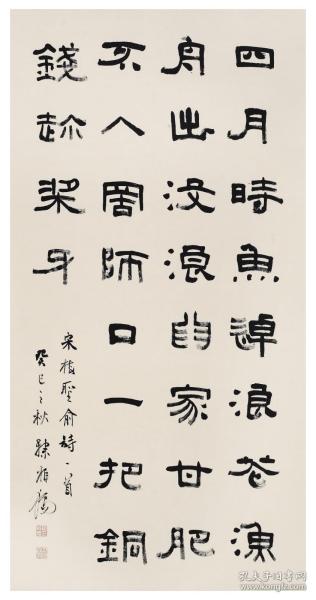 四月時魚逴浪花漁
舟出没浪為家甘肥
不入罟師口一把銅
錢趂桨牙
宋梅聖俞詩一首
癸巳之秋孫伯翔
孔夫子旧书网